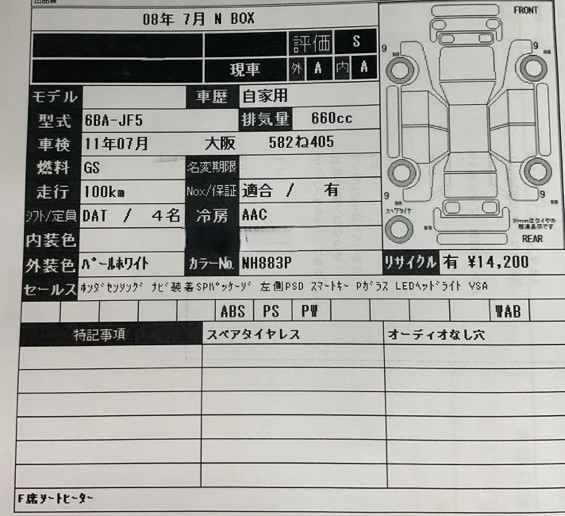 08年 7月 N BOX
評価 S
現車 外 A 内 A
モデル 車歴 自家用
型式 6BA-JF5 排気量 660cc
車検 11年07月 大阪 582ね405
燃料 GS 名変期限
走行 100km Nox/保証 適合 / 有
シフト/定員 DAT / 4名 冷房 AAC
内装色
外装色 パールホワイト カラーNo. NH883P
リサイクル 有 ¥14,200
セールス ホンダセンシング ナビ装着SPパッケージ 左側PSD スマートキー Pガラス LEDヘッドライト VSA
ABS PS PW WAB
特記事項 スペアタイヤレス オーディオなし穴
F席シートヒーター
FRONT
9 9
9 9
スペアタイヤ
REAR